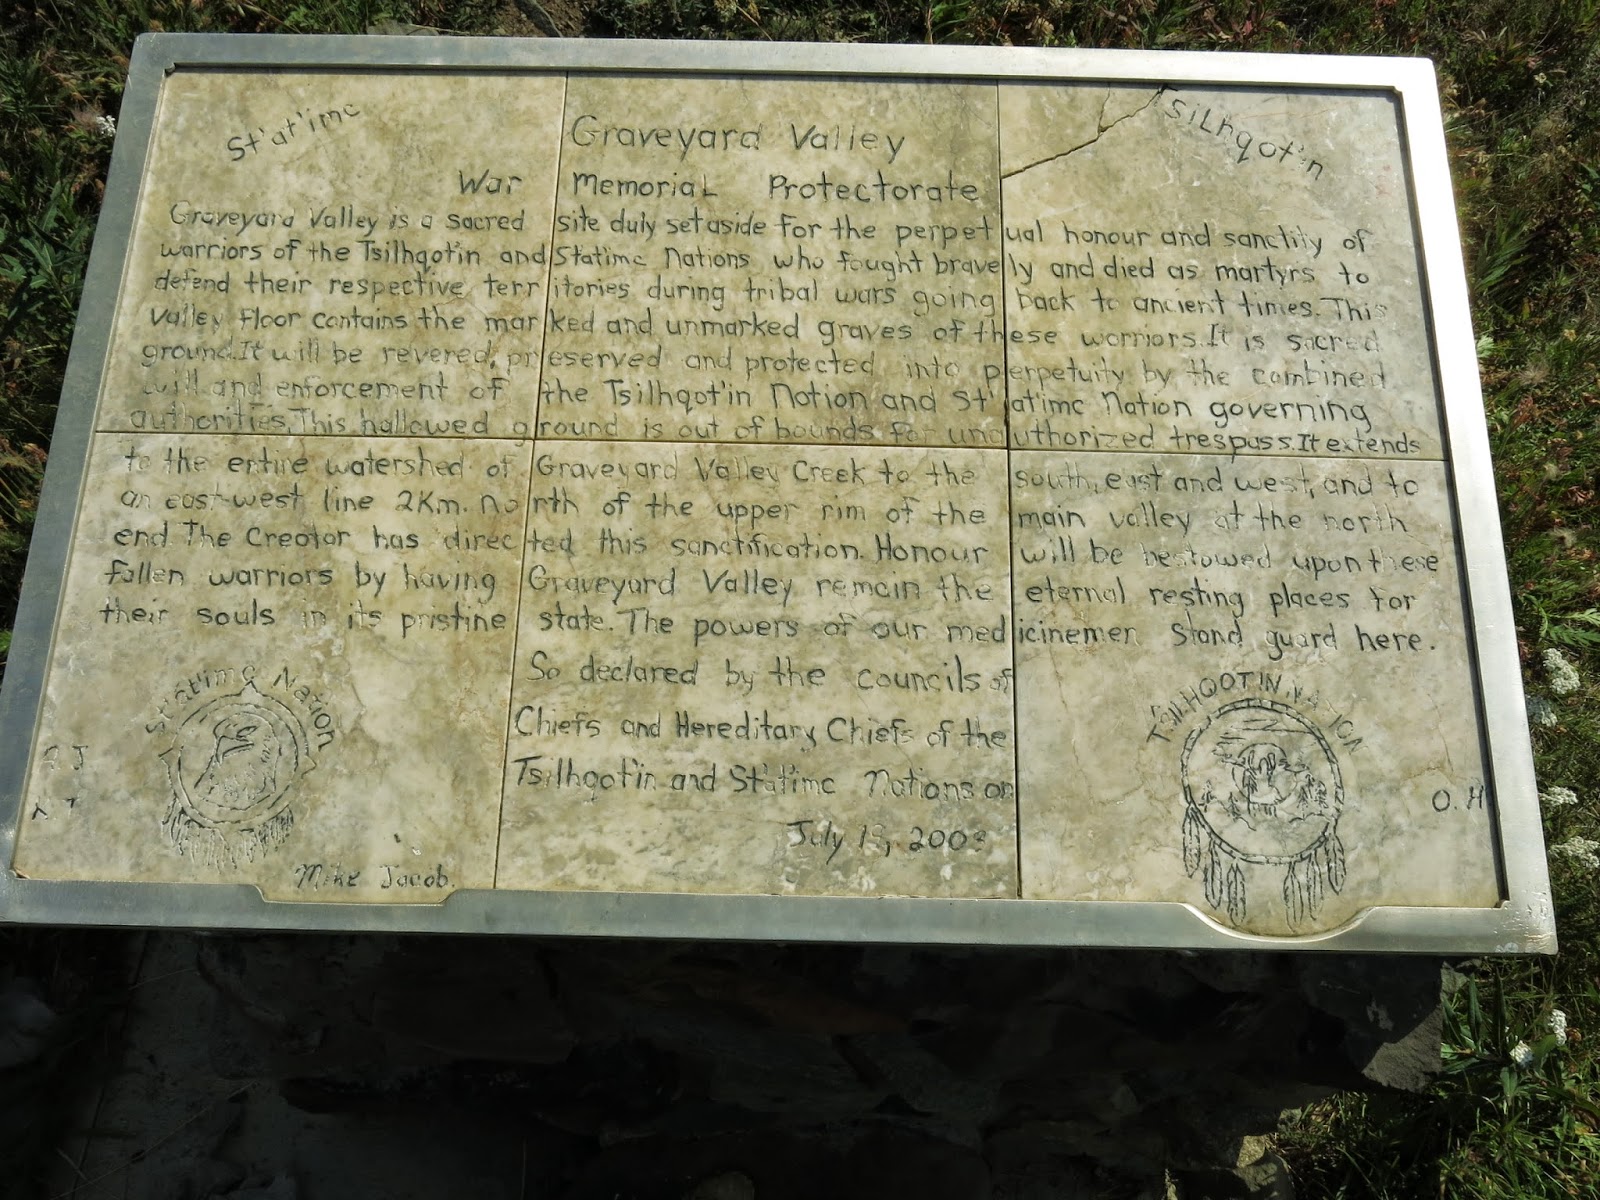 St'at'imc
Graveyard Valley
Tsilhqot'in
War Memorial Protectorate
Graveyard Valley is a sacred site duly set aside for the perpetual honour and sanctity of
warriors of the Tsilhqot'in and Stat'imc Nations who fought bravely and died as martyrs to
defend their respective territories during tribal wars going back to ancient times. This
valley floor contains the marked and unmarked graves of these warriors. It is sacred
ground. It will be revered, preserved and protected into perpetuity by the combined
will and enforcement of the Tsilhqot'in Nation and St'at'imc Nation governing
authorities. This hallowed ground is out of bounds for unauthorized trespass. It extends
to the entire watershed of Graveyard Valley Creek to the south, east and west, and to
an east-west line 2Km. North of the upper rim of the main valley at the north
end. The Creator has directed this sanctification. Honour will be bestowed upon these
fallen warriors by having Graveyard Valley remain the eternal resting places for
their souls in its pristine state. The powers of our medicinemen stand guard here.
So declared by the councils of
Chiefs and Hereditary Chiefs of the
Tsilhqot'in and St'at'imc Nations on
July 2009
St'at'imc Nation
TSILHQOT'IN NATION
J
O. H
Mike Jacob.